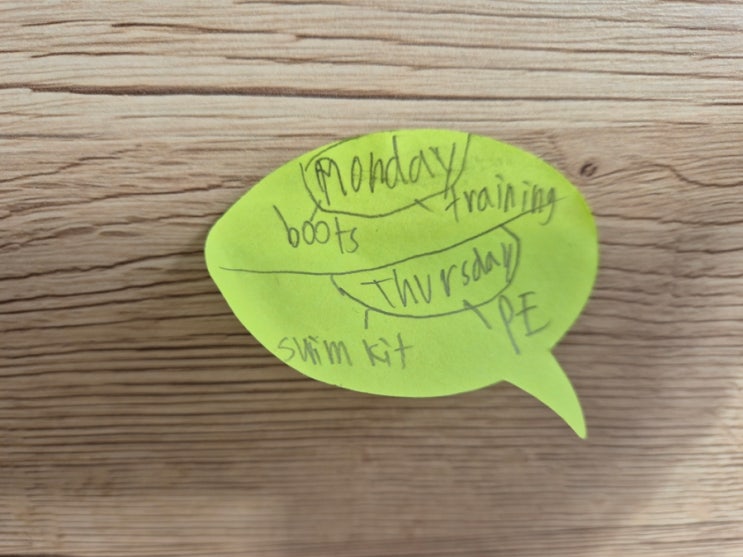 Monday
boots training
Thursday
swim kit PE